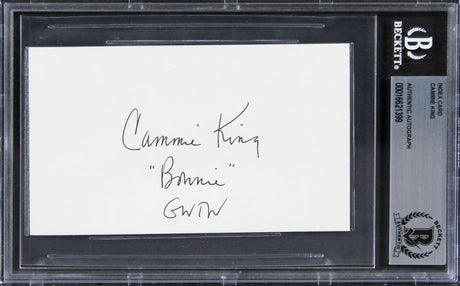 Cammie King
"Bonnie"
GWTW
BECKETT®
INDEX CARD
CAMMIE KING
AUTHENTIC AUTOGRAPH
00016621399
BECKETT
AUTHENTIC